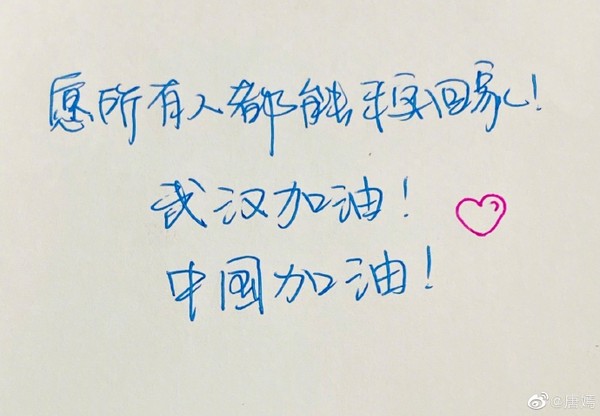 愿所有人都能平安回家!
武汉加油!
中國加油!
@唐婷